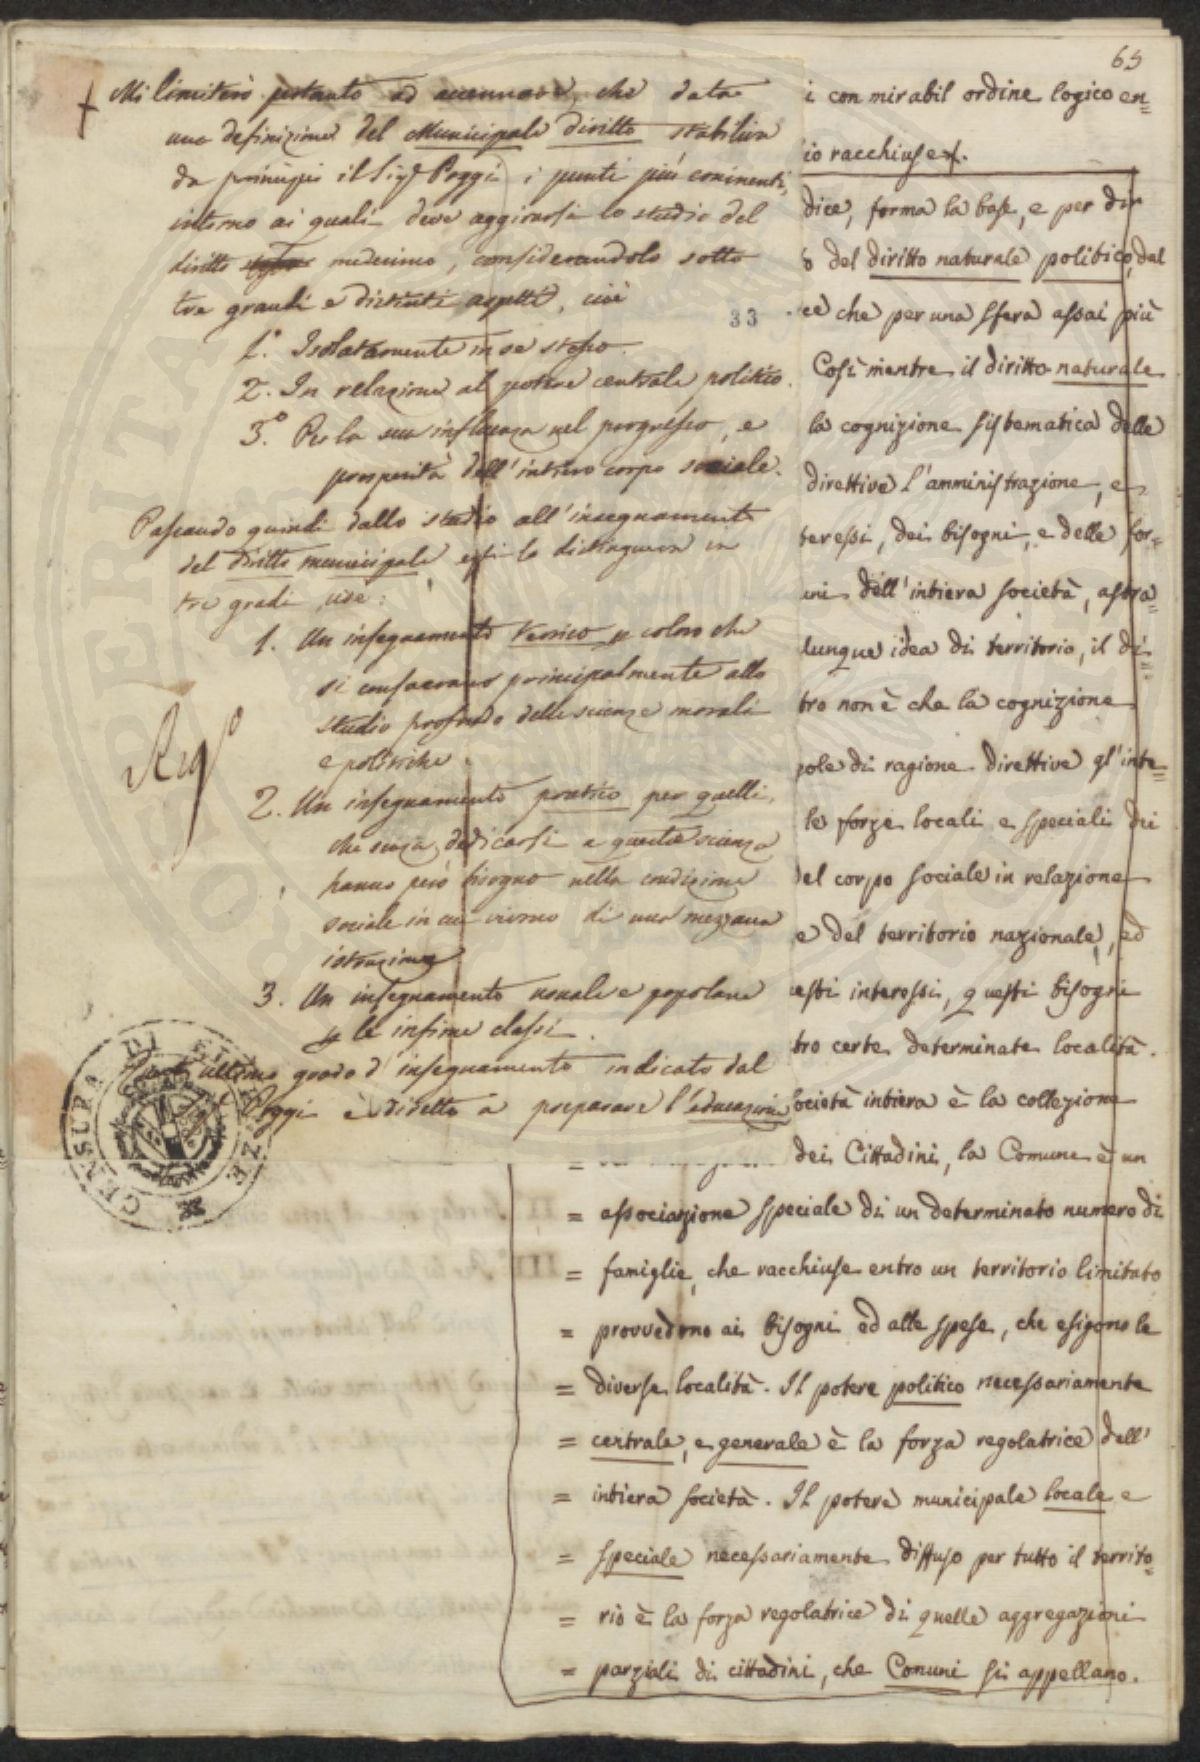 65
Mi limiterò pertanto ad accennare, che data
una definizione del Municipale diritto stabiliva
da principio il Sigr Poggi i punti più eminenti,
intorno ai quali deve aggirarsi lo studio del
diritto medesimo, considerandolo sotto
tre grandi e distinti aspetti, cioè
33
1.° Isolatamente in se stesso.
2. In relazione al potere centrale politico.
3.° Per la sua influenza nel progresso, e
prosperità dell'intiero corpo sociale.
Passando quindi dallo studio all'insegnamento
del diritto municipale egli lo distingueva in
tre gradi, cioè:
1. Un insegnamento teorico p coloro che
si consacrano principalmente allo
studio profondo delle scienze morali
e politiche.
2. Un insegnamento pratico per quelli,
che senza dedicarsi a questa scienza
hanno però bisogno nella condizione
sociale in cui vivono di una mezzana
istruzione
3. Un insegnamento normale e popolare
p le infime classi.
ultimo grado d'insegnamento indicato dal
Poggi è diretto a preparare l'educazione
CENSURA DI FIRENZE
i con mirabil ordine logico en=
io racchiuse.
dice, forma la base, e per dir
o del diritto naturale politico, dal
ce che per una sfera assai più
Così mentre il diritto naturale
la cognizione sistematica delle
direttive l'amministrazione, e
teressi, dei bisogni, e delle for=
uni dell'intiera società, astra=
lunque idea di territorio, il di=
tro non è che la cognizione
gole di ragione direttive gl'inte=
le forze locali e speciali dei
del corpo sociale in relazione
e del territorio nazionale, ed
uesti interessi, questi bisogni
tro certe determinate località.
ocietà intiera è la collezione
dei Cittadini, la Comune è un
= associazione speciale di un determinato numero di
= famiglie, che racchiuse entro un territorio limitato
= provvedono ai bisogni ed alle spese, che esigono le
= diverse località. Il potere politico necessariamente
= centrale, e generale è la forza regolatrice dell'
= intiera società. Il potere municipale locale e
= speciale necessariamente diffuso per tutto il territo=
= rio è la forza regolatrice di quelle aggregazioni
= parziali di cittadini, che Comuni si appellano.